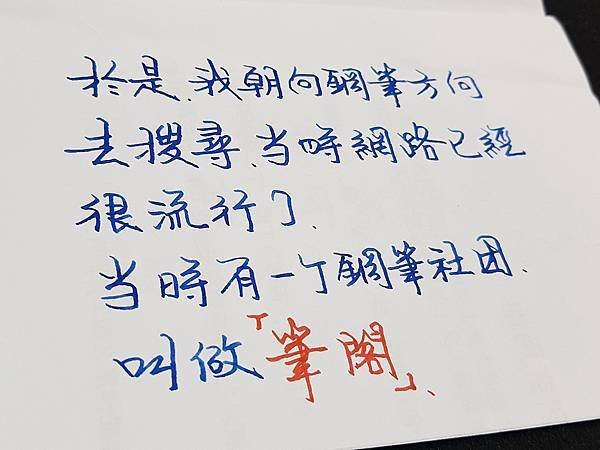 於是、我朝向鋼筆方向
去搜尋、当時網路已經
很流行了、
当時有一个鋼筆社团、
叫做「筆閣」、